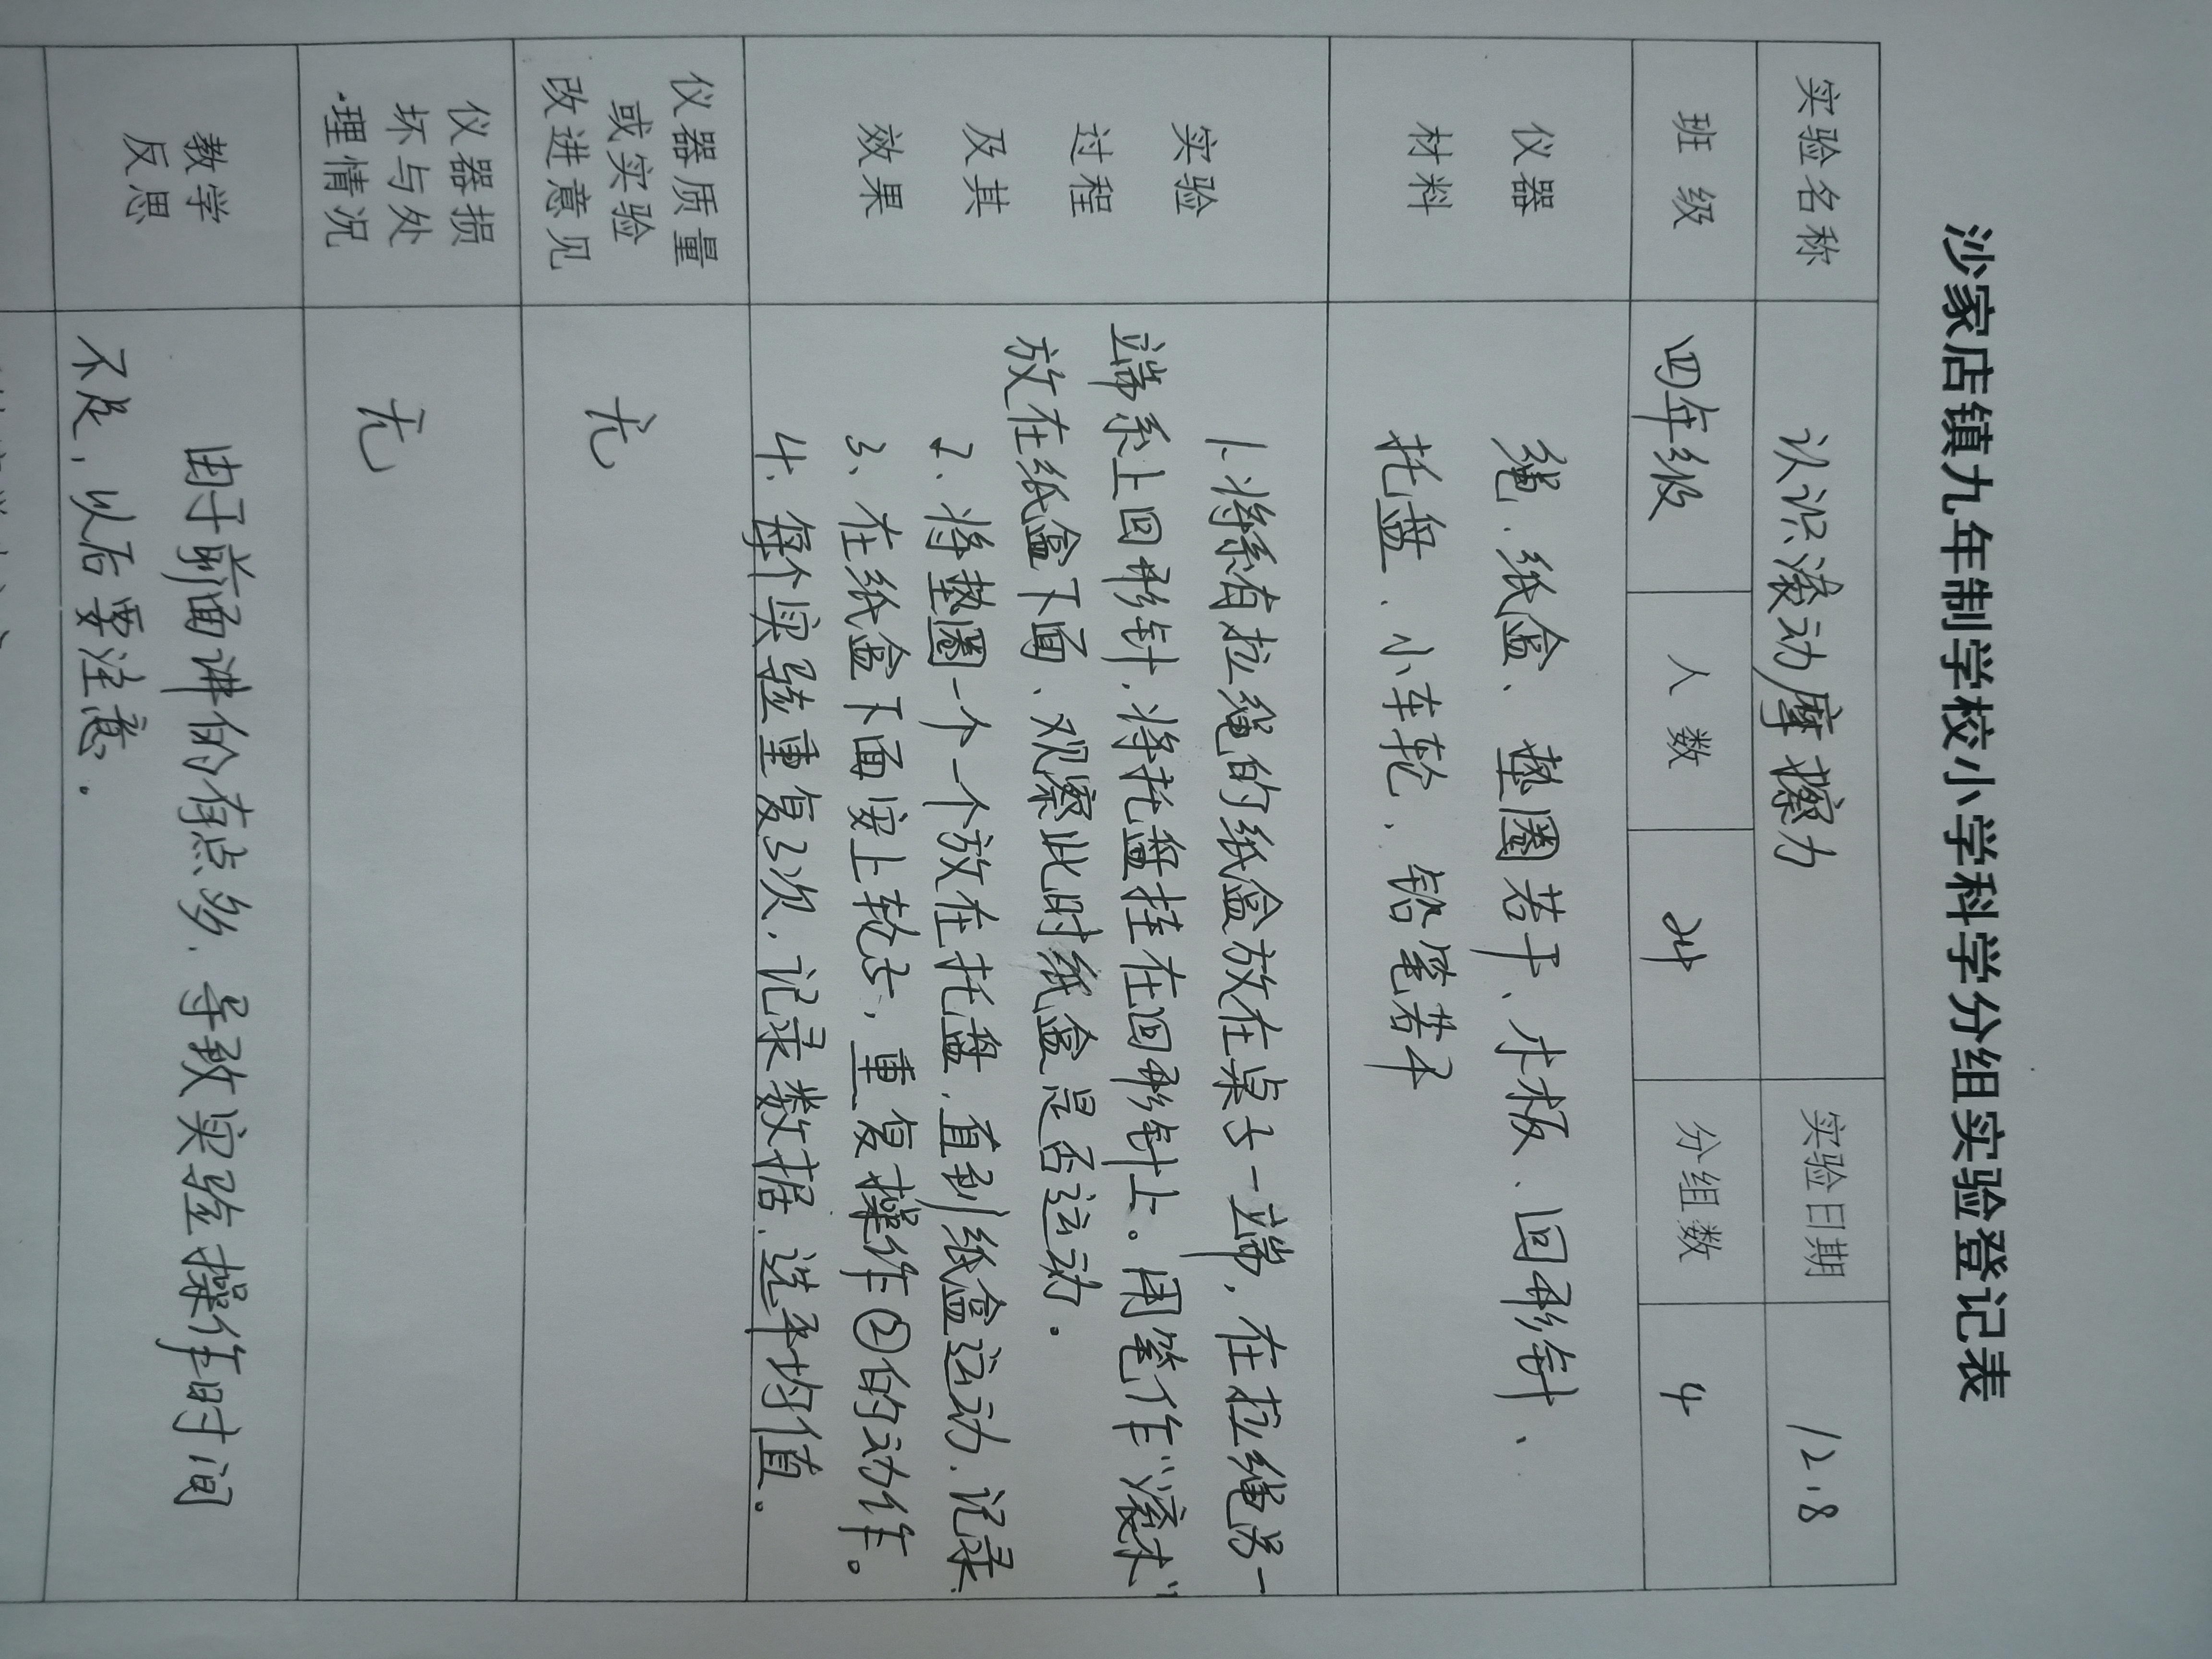 沙家店镇九年制学校小学科学分组实验登记表
实验名称 认识滚动摩擦力 实验日期 12.8
班级 四年级 人数 24 分组数 4
仪器 绳、纸盒、垫圈若干、木板、回形针、
材料 托盘、小车轮、铅笔若干
实验
过程
及其
效果
1.将系有拉绳的纸盒放在桌子一端,在拉绳另一
端系上回形针,将托盘挂在回形针上。用笔作“滚木”
放在纸盒下面、观察此时纸盒是否运动.
2、将垫圈一个一个放在托盘,直到纸盒运动.记录
3、在纸盒下面安上轮子,重复操作②的动作。
4、每个实验重复3次,记录数据、选平均值。
仪器质量
或实验
改进意见
无
仪器损
坏与处
理情况
无
教学
反思
由于前面讲的有点多,导致实验操作时间
不足,以后要注意.